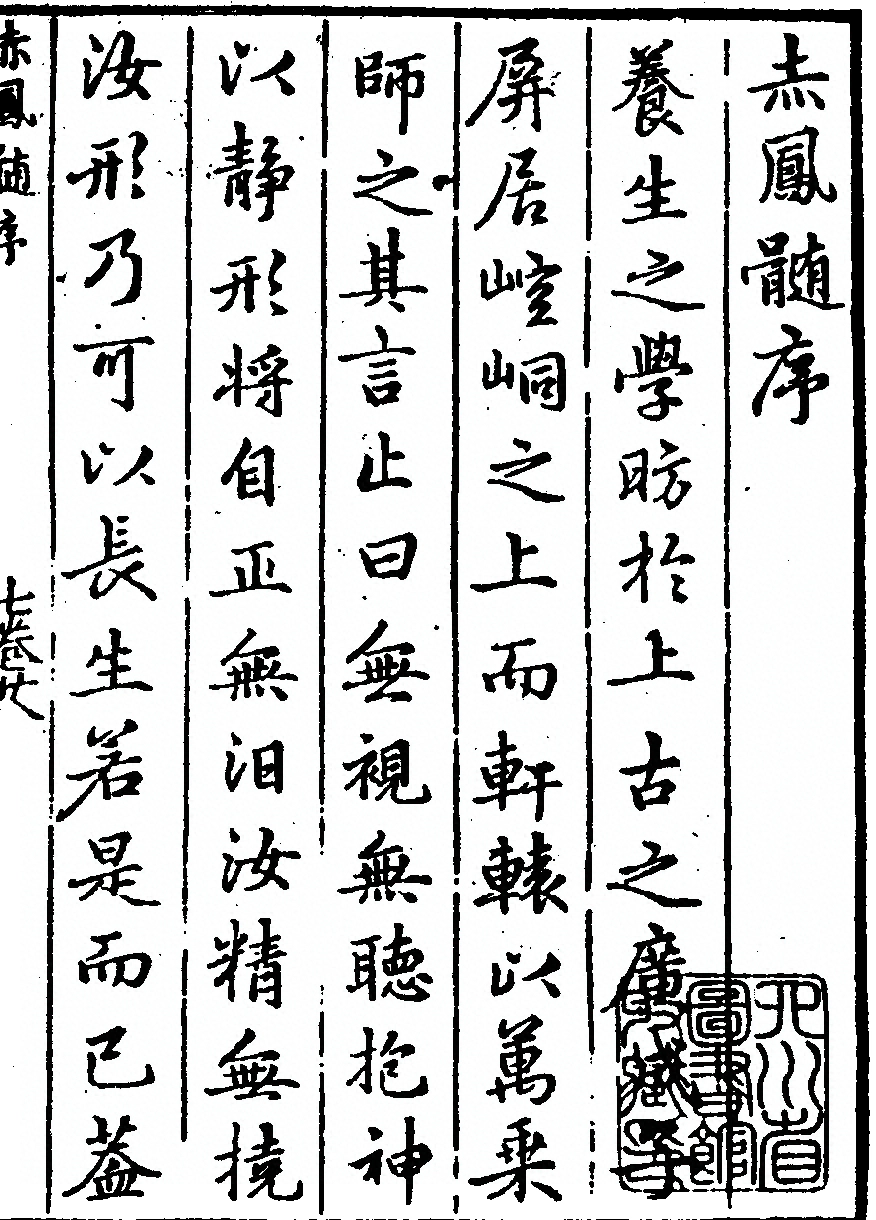 赤鳳髓序
養生之學昉於上古之廣成子
屏居崆峒之上而軒轅以萬乗
師之其言止曰無視無聽抱神
以静形将自正無汨汝精無撓
汝形乃可以長生若是而已葢
赤鳳髓序
四川省
圖書館
藏